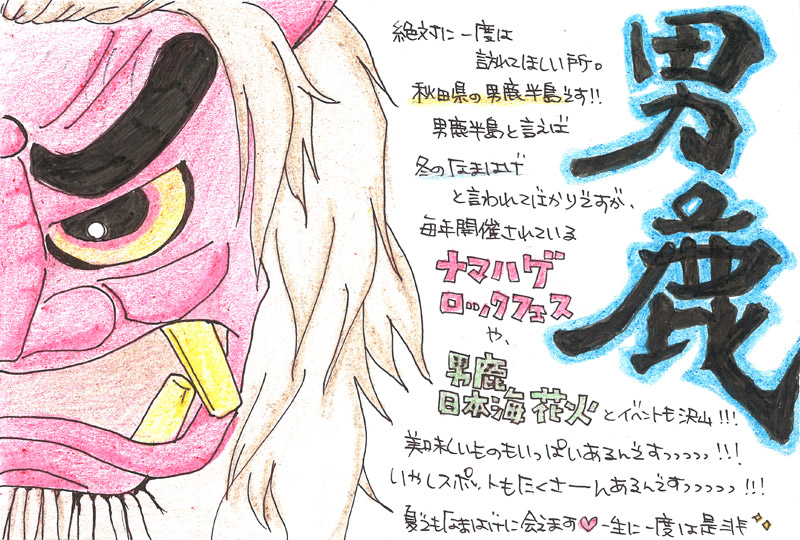 男鹿
絶対に一度は
訪れてほしい所。
秋田県の男鹿半島です!!
男鹿半島と言えば
冬のなまはげ
と言われてばかりですが、
毎年開催されている
ナマハゲ
ロックフェス
や、
男鹿
日本海花火とイベントも沢山!!!
美味しいものもいっぱいあるんですっっっっっ!!!
いやしスポットもたくさーんあるんですっっっっっ!!!
夏でもなまはげに会えます♥一生に一度は是非